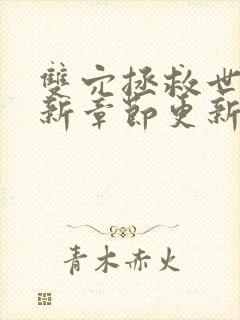 雙穴拯救世
新章節更新
青木赤火